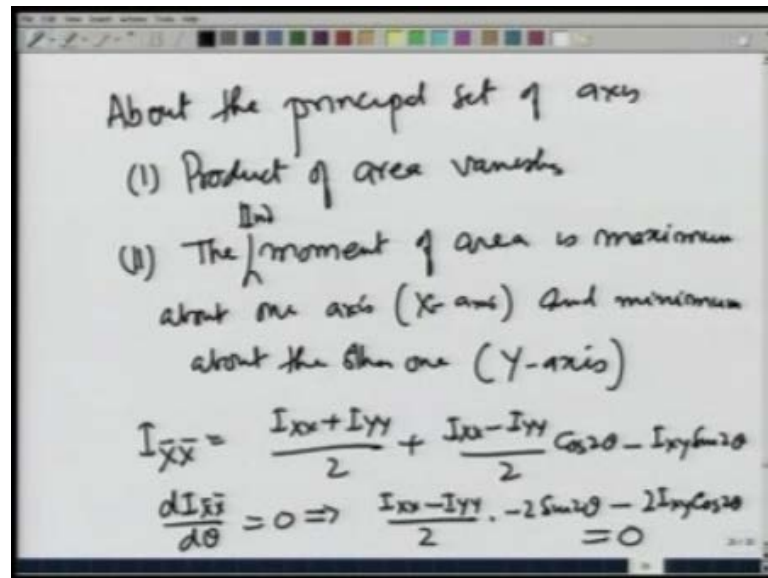 About the principal set of axis
(I) Product of area vanishes
IInd
(II) The moment of area is maximum
about one axis (X-axis) and minimum
about the other one (Y-axis)
I_X̄X̄ = (Ixx + Iyy)/2 + (Ixx - Iyy)/2 Cos2θ - Ixy Sin2θ
dI_X̄X̄/dθ = 0 ⇒ (Ixx - Iyy)/2 . -2 Sin2θ - 2Ixy Cos2θ
= 0